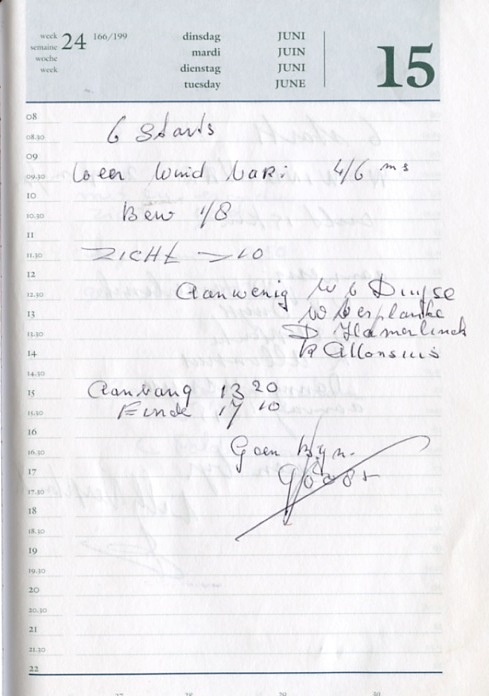 week 24 166/199 dinsdag JUNI 15
semaine mardi JUIN
woche dienstag JUNI
week tuesday JUNE
08
6 Starts
08.30
09
Weer Wind Vari: 4/6 ms
09.30
10
Bew 1/8
10.30
11
ZICHT >10
11.30
12
Aanwezig W
12.30
W Verplanke
13
D Hamerlinck
13.30
R Allonsius
14
14.30
15
Aanvang 13 20
Einde 17 10
15.30
16
Geen
16.30
17
17.30
18
18.30
19
19.30
20
20.30
21
21.30
22